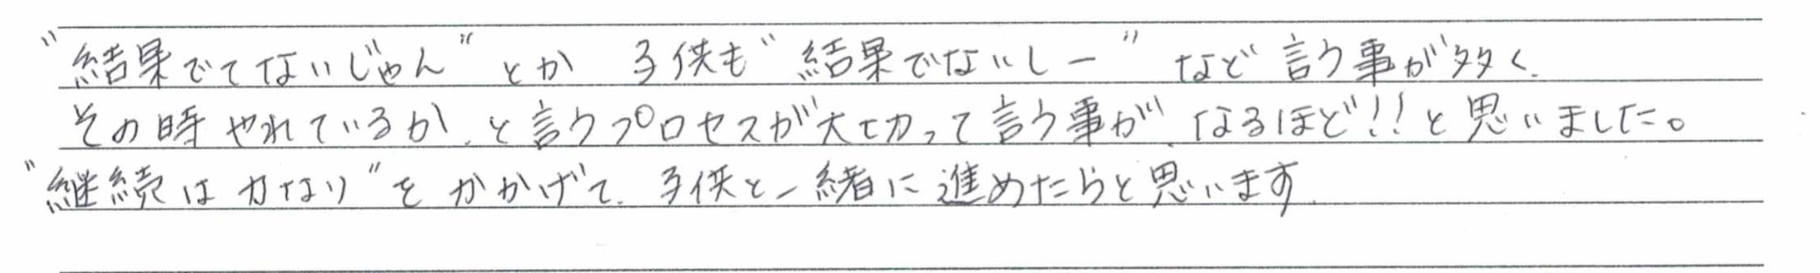 "結果でてないじゃん"とか 子供も"結果でないしー"など言う事が多く、
その時やれているか、と言うプロセスが大切って言う事が、なるほど!!と思いました。
"継続は力なり"をかかげて、子供と一緒に進めたらと思います。